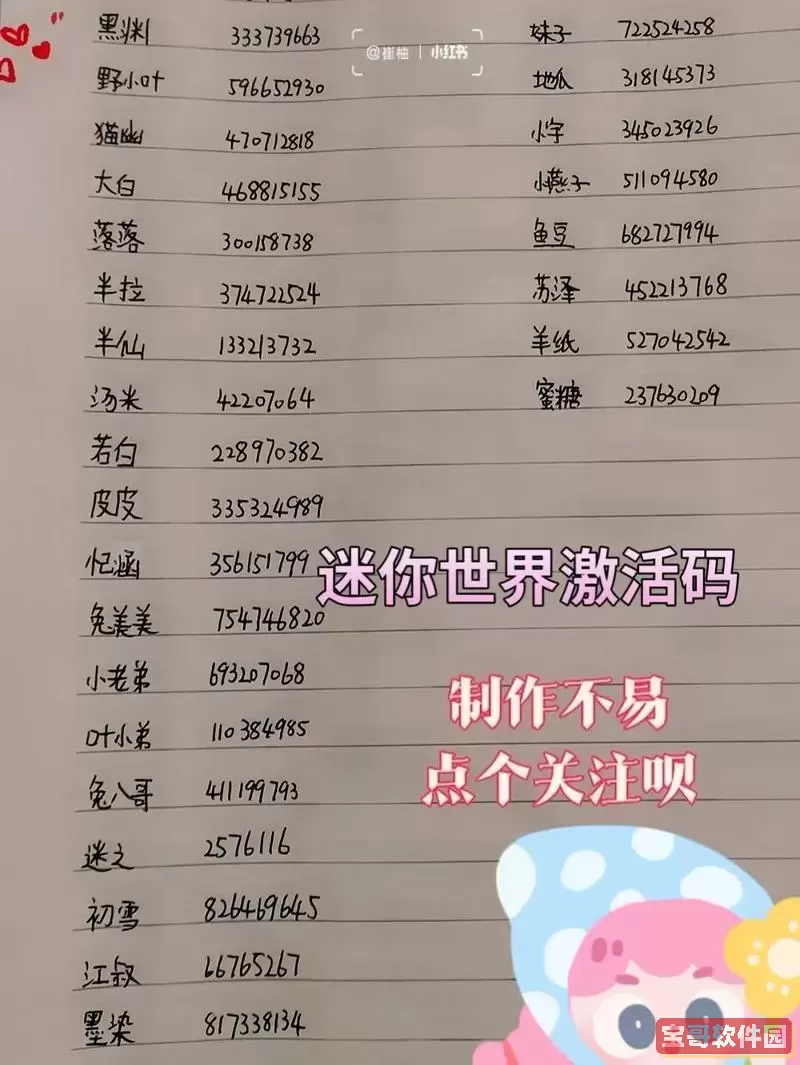 黑渊 333739663
野小叶 596652930
猫幽 470712818
大白 468815155
落落 300158738
半拉 374722524
半仙 133213732
汤米 42207064
若白 228970382
皮皮 335324989
忆涵 356151799
兔美美 754746820
小老弟 693207068
叶小弟 110384985
兔八哥 411199793
迷之 2576116
初雪 826469645
江叔 66765267
墨染 817338134
@崔柚 | 小红书
妹子 722524258
地瓜 318145373
小宇 345023926
小燕子 511094580
鱼豆 682727994
苏泽 452213768
羊纸 527042542
蜜糖 237630209
迷你世界激活码
制作不易
点个关注呗
宝哥软件园